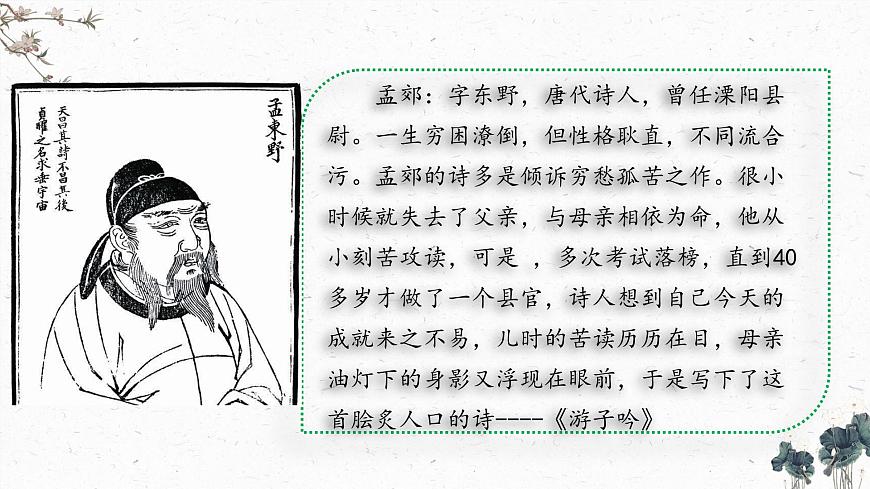 孟東野
天曰其詩不昌其後
貞曜之名求垂宇宙
孟郊：字东野，唐代诗人，曾任溧阳县
尉。一生穷困潦倒，但性格耿直，不同流合
污。孟郊的诗多是倾诉穷愁孤苦之作。很小
时候就失去了父亲，与母亲相依为命，他从
小刻苦攻读，可是 ，多次考试落榜，直到40
多岁才做了一个县官，诗人想到自己今天的
成就来之不易，儿时的苦读历历在目，母亲
油灯下的身影又浮现在眼前，于是写下了这
首脍炙人口的诗----《游子吟》